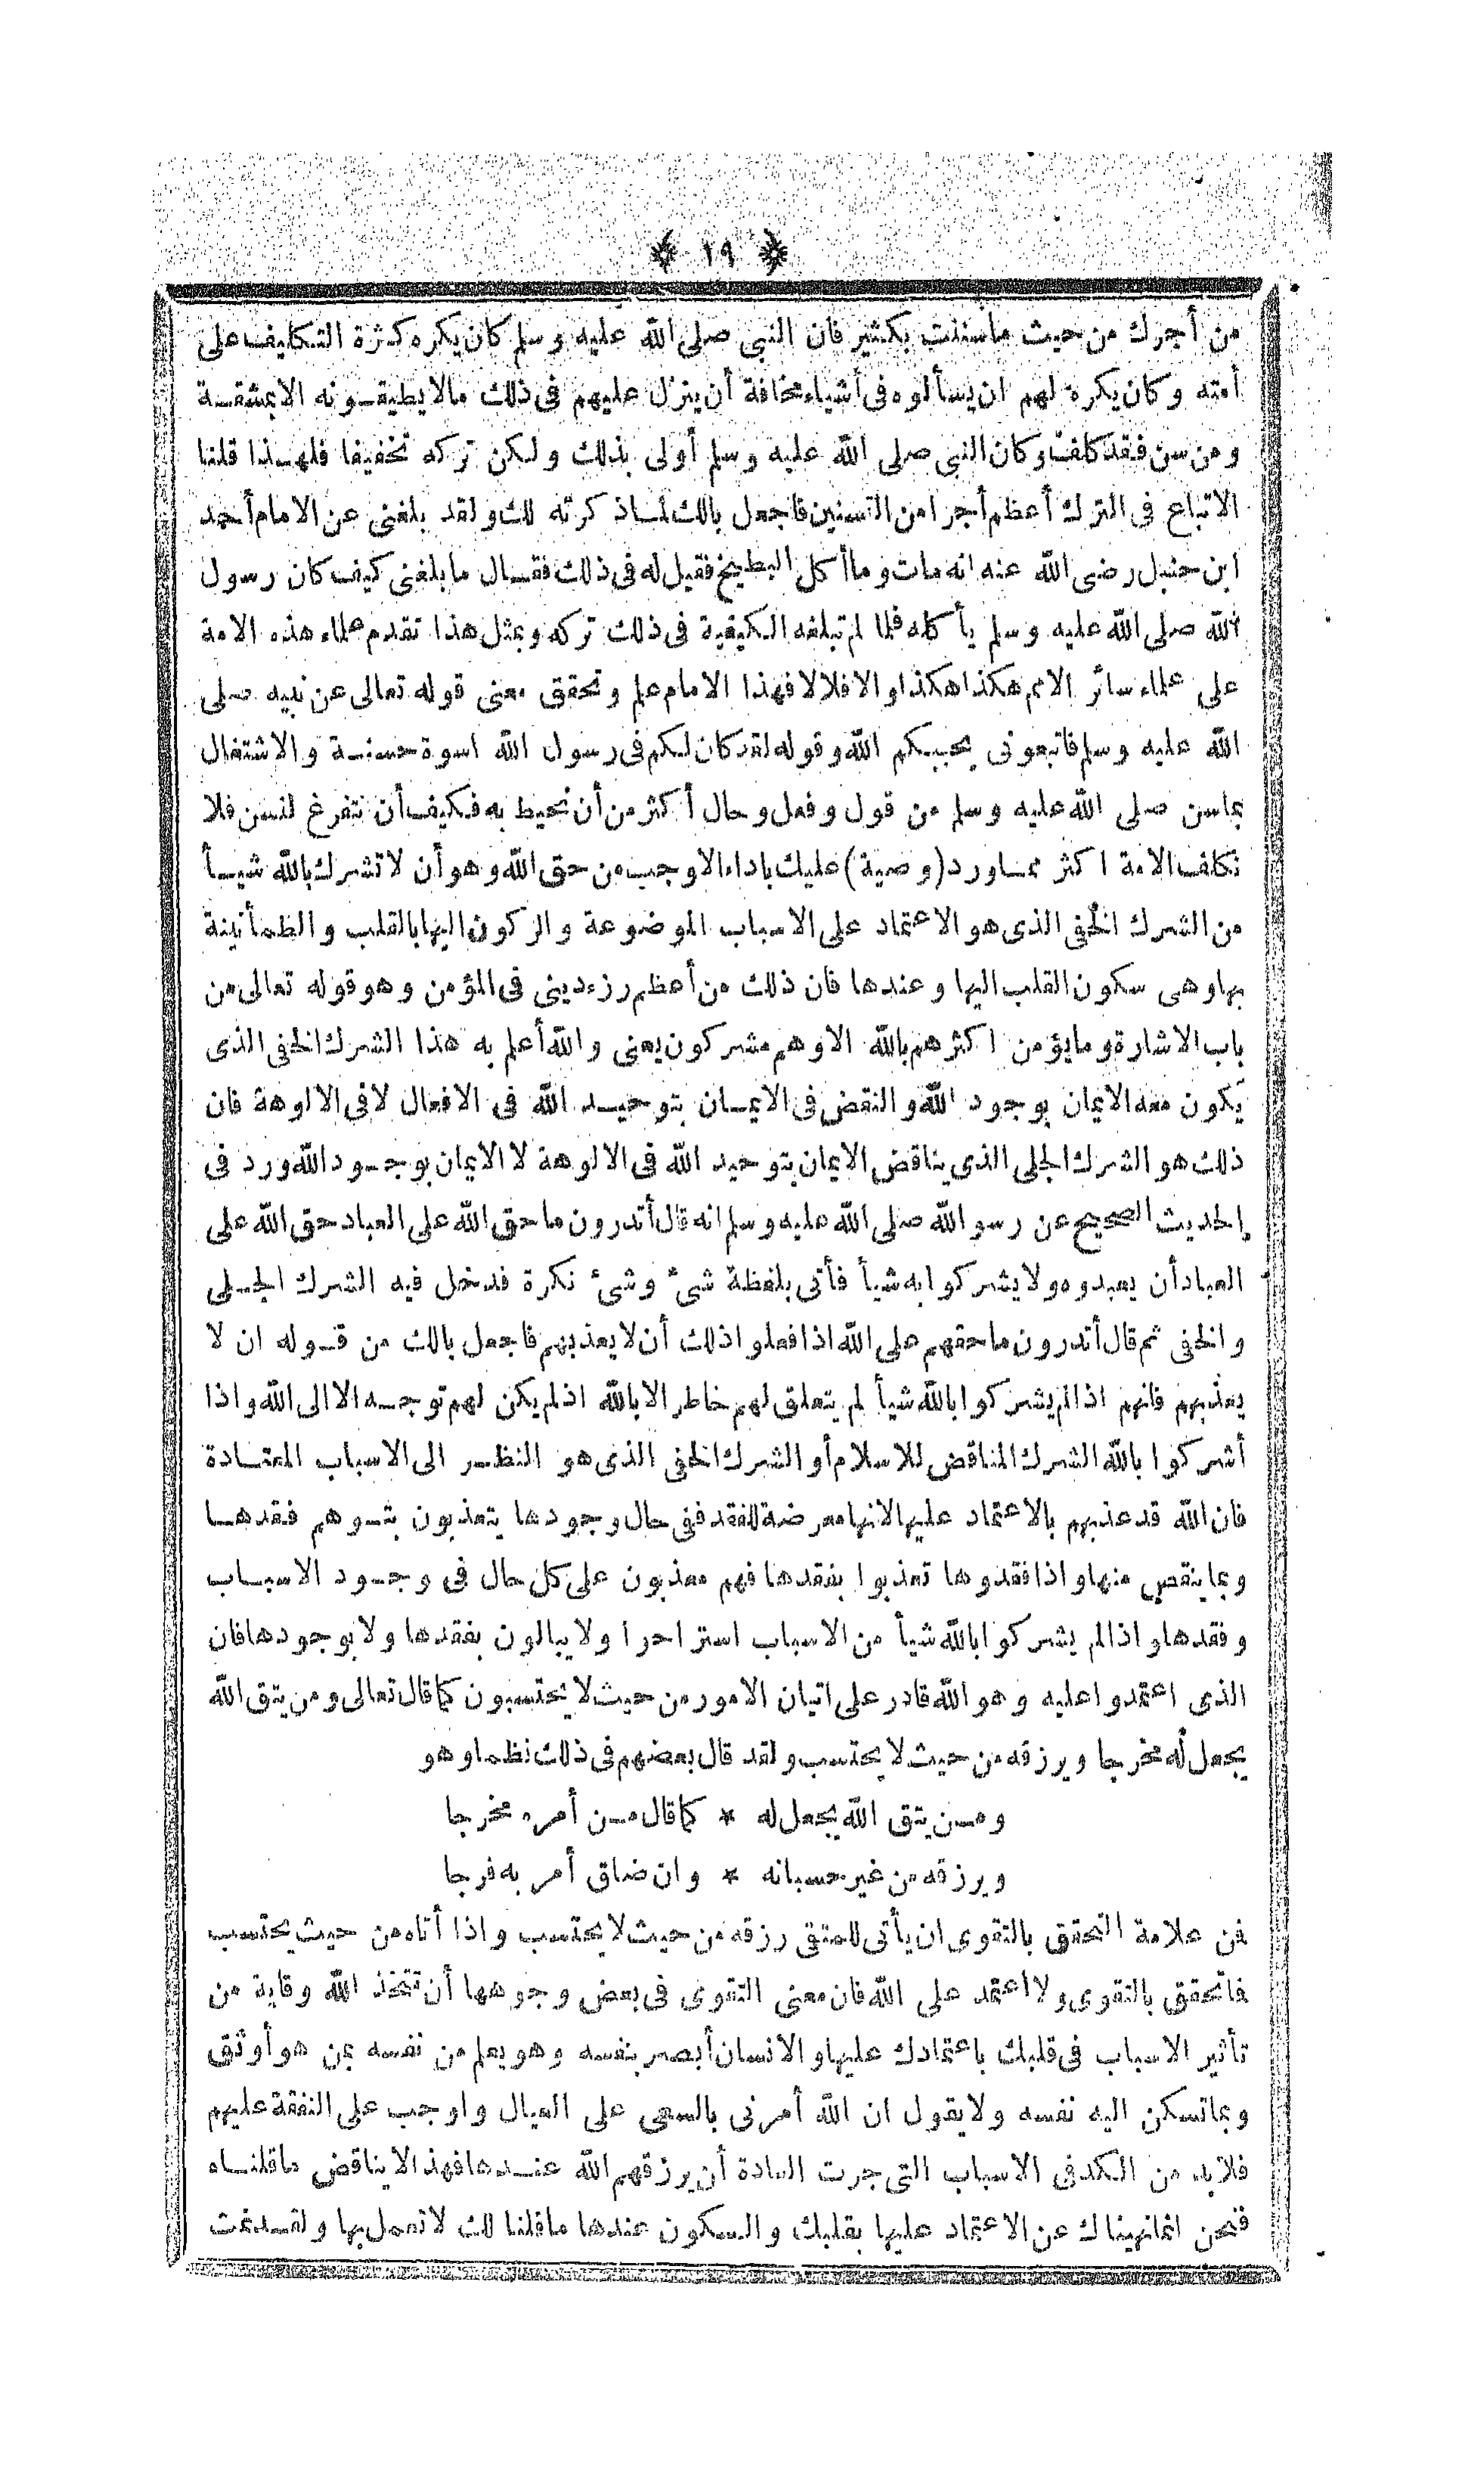 ﴿ ١٩ ﴾
من أجرك من حيث ماسننت بكثير فان النبي صلى الله عليه وسلم كان يكره كثرة التكليف على
أمته وكان يكره لهم ان يسألوه فى أشياء مخافة أن ينزل عليهم فى ذلك مالا يطيقونه الا بمشقة
ومن سن فقد كلف وكان النبي صلى الله عليه وسلم أولى بذلك ولكن تركه تخفيفا فلهذا قلنا
الاتباع فى الترك أعظم أجرا من التسنين فاجعل بالك لماذكرته لك ولقد بلغنى عن الامام أحمد
ابن حنبل رضى الله عنه انه مات وما أكل البطيخ فقيل له فى ذلك فقال ما بلغنى كيف كان رسول
الله صلى الله عليه وسلم يأكله فلما لم تبلغه الكيفية فى ذلك تركه وبمثل هذا تقدم علماء هذه الامة
على علماء سائر الامم هكذا هكذا والا فلالا فهذا الامام علم وتحقق معنى قوله تعالى عن نبيه صلى
الله عليه وسلم فاتبعونى يحببكم الله وقوله لقد كان لكم فى رسول الله اسوة حسنة والاشتغال
بماسن صلى الله عليه وسلم من قول وفعل وحال أكثر من أن نحيط به فكيف أن نتفرغ لنسن فلا
نكلف الامة اكثر مماورد (وصية) عليك باداء الاوجب من حق الله وهو أن لا تشرك بالله شيأ
من الشرك الخفى الذى هو الاعتماد على الاسباب الموضوعة والركون اليها بالقلب والطمأنينة
بها وهى سكون القلب اليها وعندها فان ذلك من أعظم رزء دينى فى المؤمن وهو قوله تعالى من
باب الاشارة وما يؤمن اكثرهم بالله الا وهم مشركون يعنى والله أعلم به هذا الشرك الخفى الذى
يكون معه الايمان بوجود الله والنقض فى الايمان بتوحيد الله فى الافعال لا فى الالوهة فان
ذلك هو الشرك الجلى الذى يناقض الايمان بتوحيد الله فى الالوهة لا الايمان بوجود الله ورد فى
الحديث الصحيح عن رسو الله صلى الله عليه وسلم انه قال أتدرون ما حق الله على العباد حق الله على
العباد أن يعبدوه ولا يشركوا به شيأ فأتى بلفظة شئ وشئ نكرة فدخل فيه الشرك الجلى
والخفى ثم قال أتدرون ما حقهم على الله اذا فعلوا ذلك أن لا يعذبهم فاجعل بالك من قوله ان لا
يعذبهم فانهم اذا لم يشركوا بالله شيأ لم يتعلق لهم خاطر الا بالله اذ لم يكن لهم توجه الا الى الله واذا
أشركوا بالله الشرك المناقض للاسلام أو الشرك الخفى الذى هو النظر الى الاسباب المعتادة
فان الله قد عذبهم بالاعتماد عليها لانها معرضة للفقد ففى حال وجودها يتعذبون بتوهم فقدها
وبما ينقص منها واذا فقدوها تعذبوا بفقدها فهم معذبون على كل حال فى وجود الاسباب
وفقدها واذا لم يشركوا بالله شيأ من الاسباب استراحوا ولا يبالون بفقدها ولا بوجودها فان
الذى اعتمدوا عليه وهو الله قادر على اتيان الامور من حيث لا يحتسبون كما قال تعالى ومن يتق الله
يجعل له مخرجا ويرزقه من حيث لا يحتسب ولقد قال بعضهم فى ذلك نظما وهو
ومن يتق الله يجعل له * كما قال من أمره مخرجا
ويرزقه من غير حسبانه * وان ضاق أمر به فرجا
فمن علامة التحقق بالتقوى ان يأتى للمتقى رزقه من حيث لا يحتسب واذا أتاه من حيث يحتسب
فاتحقق بالتقوى ولا اعتمد على الله فان معنى التقوى فى بعض وجوهها أن تتخذ الله وقاية من
تأثير الاسباب فى قلبك باعتمادك عليها والانسان أبصر بنفسه وهو يعلم من نفسه بمن هو أوثق
وبماتسكن اليه نفسه ولا يقول ان الله أمرنى بالسعى على العيال واوجب على النفقة عليهم
فلابد من الكد فى الاسباب التى جرت العادة أن يرزقهم الله عندها فهذا لا يناقض ماقلناه
فنحن انما نهيناك عن الاعتماد عليها بقلبك والسكون عندها ما قلنا لك لا تعمل بها ولقد نمت